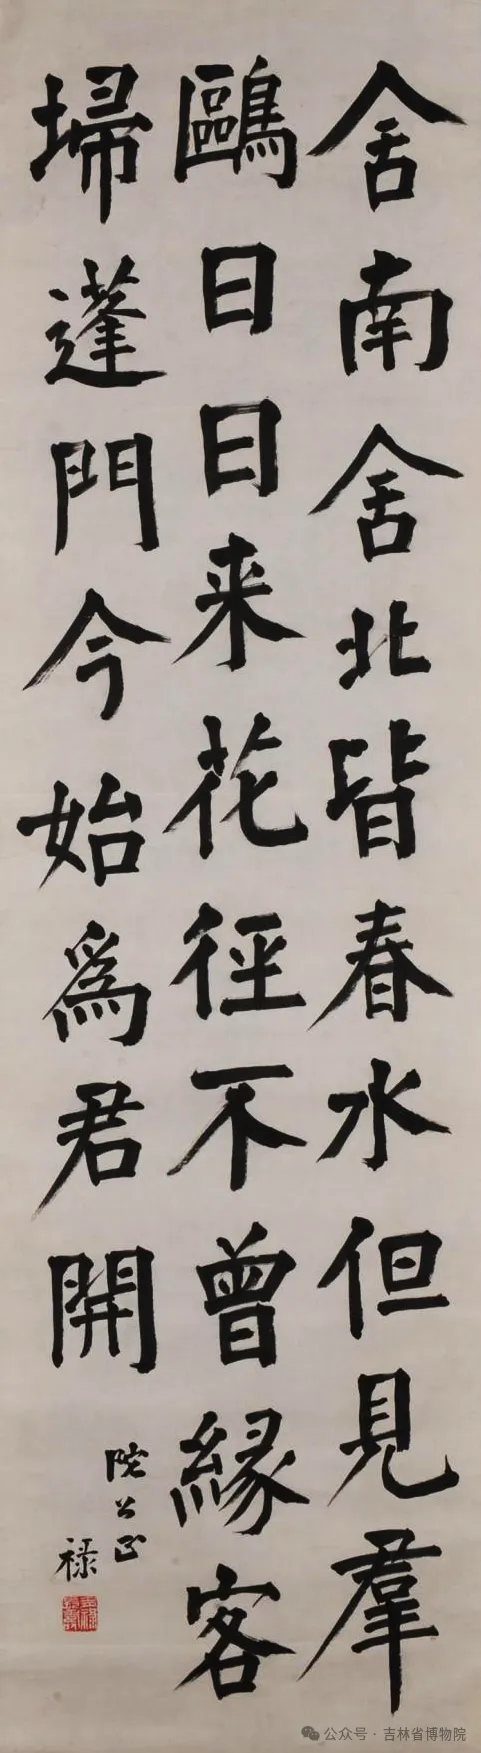 舍南舍北皆春水但見羣
鷗日日来花徑不曾緣客
掃蓬門今始為君開
院公正
禄
公众号 · 吉林省博物院